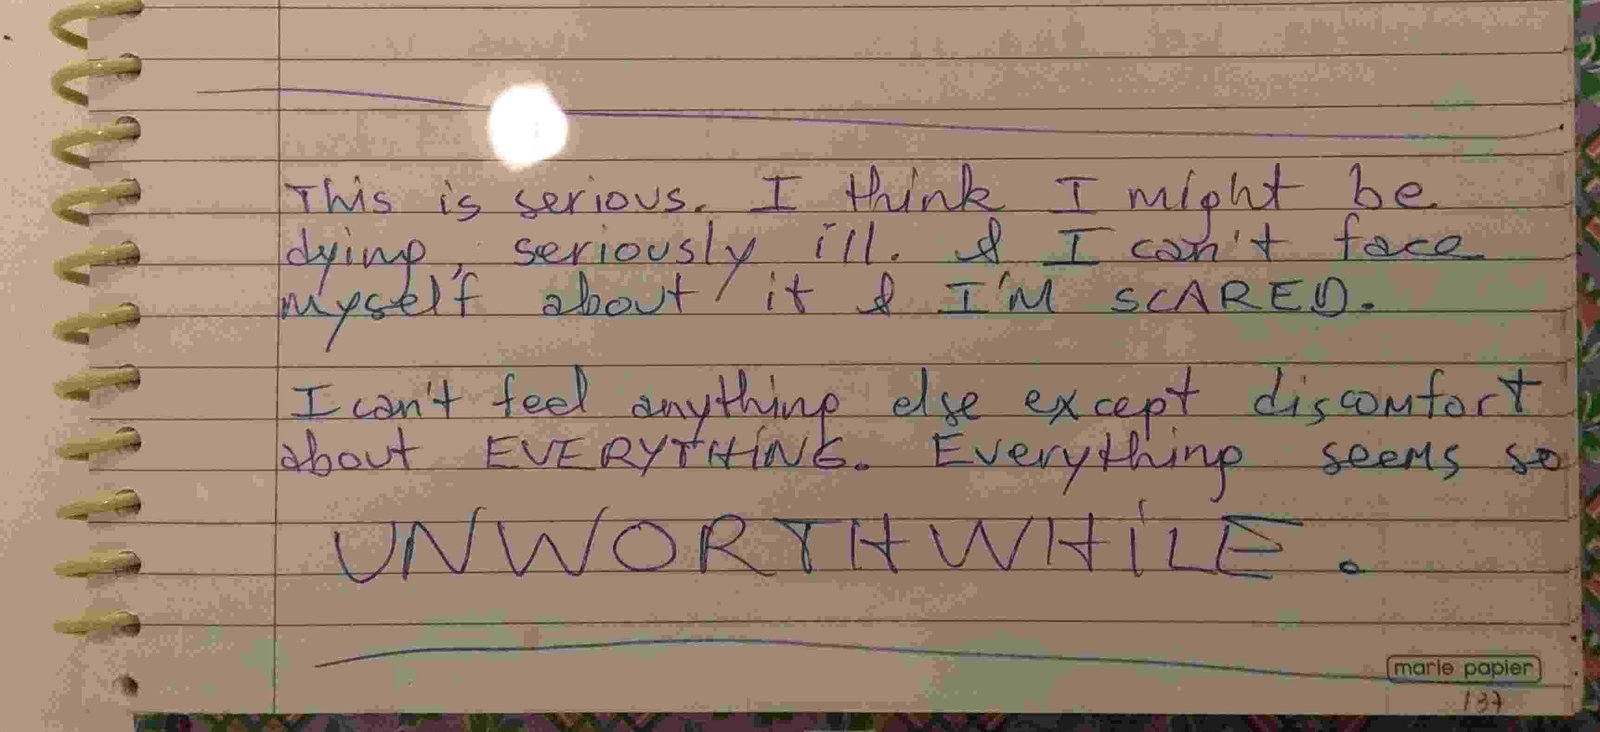 This is serious. I think I might be
dying, seriously ill. & I can't face
myself about it & I'M SCARED.
I can't feel anything else except discomfort
about EVERYTHING. Everything seems so
UNWORTHWHILE.
marie papier
137